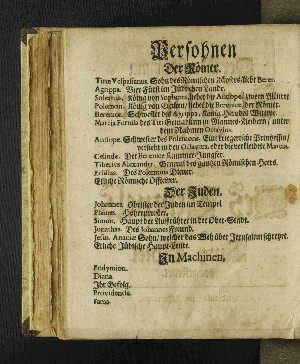 Persohnen
Der Römer.
Titus Vespasianus. Sohn des Römischen Käysers/ liebt Beren.
Agrippa. Vier-Fürst im Jüdischen Lande.
Sohemus. König von Sophena, liebet die Antiope/ zweer Münre
Polemon. König von Cicilien/ liebet die Berenice/ der Römer.
Berenice. Schwester des Agrippa, König Herodes Wittwe.
Marcia Furnilla des Titi Gemahlin in Mannes-Kleidern/ unter
dem Nahmen Octavius.
Antiope. Schwester des Polemons. Eine kriegerische Prinzessin/
verliebt in den Octavius, oder die verkleidete Marcia.
Celinde. Der Berenice Kammer-Jungfer.
Tiberius Alexander. General des gantzen Römischen-Heers.
Des Polemons Diener.
Etliche Römische Officirer.
Der Juden.
Johannes. Obrister der Juden im Tempel
Phanes. Hoherpriester.
Simon. Haupt der Auffrührer in der Ober-Stadt.
Jonathas. Des Johannes Freund.
Jesus. Ananiæ Sohn/ welcher das Weh über Jerusalem schreyet.
Etliche Jüdische Haupt-Leute.
In Machinen,
Endymion.
Diana.
Ihr Gefolg.
Providentia.
Fama.